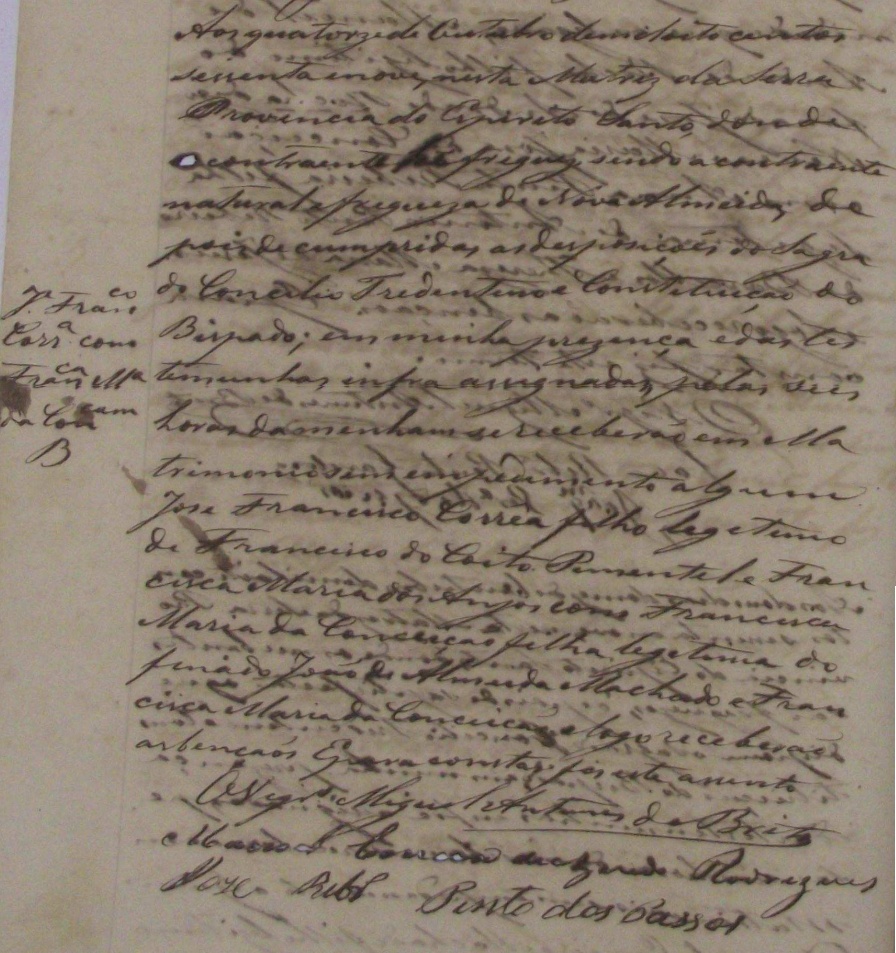 Aos quatorze de Outubro demil oito centos
sessenta e nove, nesta Matriz da Serra
Provincia do Espirito Santo, donde
o contraente hé freguez, sendo a contraente
natural e fregueza de Nova Almeida, de
pois de cumpridas as desposições do Sagra
do Concilio Tredentino e Constituiçaõ do
Bispado; em minha prezença e das tes
temunhas infra assignadas, pelas seis
horas da menham se receberaõ em Ma
trimonio sem empedimento algum
José Francisco Correa filho legetimo
de Francisco do Coito Pimentel e Fran
cisca Maria dos Anjos com Francisca
Maria da Conceiçaõ filha legetima do
finado Joaõ de Almeida Machado e Fran
cisca Maria da Conceiçaõ, e logo receberaõ
as bençaõs E para constar fis este assento
O Vigrº Miguel Antunes de Brito
Rodrigues
Joze Ribº Pinto dos Passos
Jº Franco
Corrª com
Franca Ma
da Concam
B